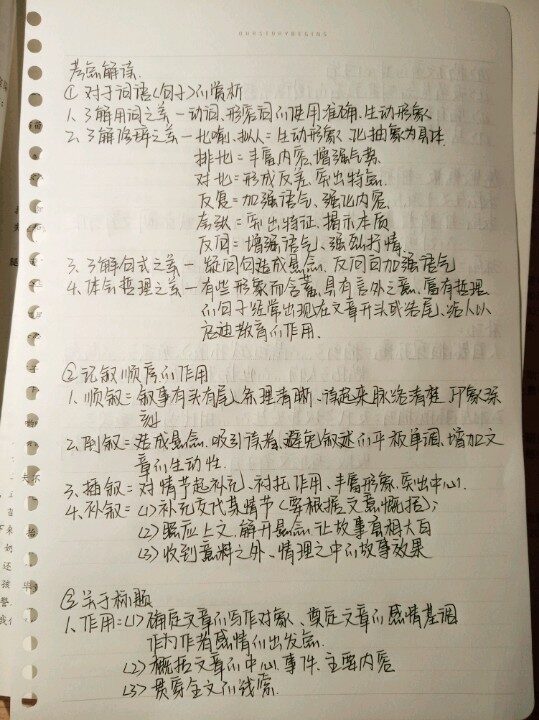 OURSTORYBEGINS
考点解读
① 对于词语(句子)的赏析
1、了解用词之美—动词、形容词的使用准确、生动形象
2、了解修辞之美—比喻、拟人=生动形象、化抽象为具体
排比=丰富内容、增强气势
对比=形成反差、突出特点
反复=加强语气、强化内容
夸张=突出特征、揭示本质
反问=增强语气、强烈抒情
3、了解句式之美—疑问句造成悬念、反问句加强语气
4、体会哲理之美—有些形象而含蓄、具有言外之意、富有哲理
的句子经常出现在文章开头或结尾、给人以
启迪教育的作用.
② 记叙顺序的作用
1、顺叙=叙事有头有尾、条理清晰、读起来脉络清楚、印象深
刻
2、倒叙=造成悬念、吸引读者、避免叙述的平板单调、增加文
章的生动性.
3、插叙=对情节起补充、衬托作用、丰富形象、突出中心.
4、补叙=(1)补充交代某情节(要根据文意概括);
(2)照应上文、解开悬念、让故事真相大白
(3)收到意料之外、情理之中的故事效果
③ 关于标题
1、作用=(1)确定文章的写作对象、奠定文章的感情基调
作为作者感情的出发点.
(2)概括文章的中心事件、主要内容
(3)贯穿全文的线索.